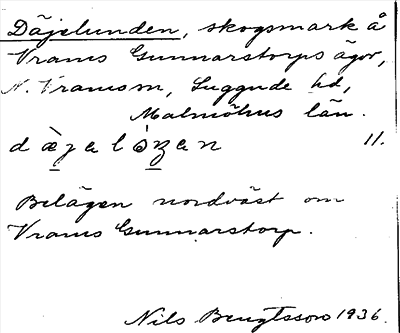 Däjelunden, skogsmark å
Vrams Gunnarstorps ägor,
N. Vramsm, Luggude hd,
Malmöhus län.
dæ̀jalòzan 11.
Belägen nordväst om
Vrams Gunnarstorp.
Nils Bengtsson 1936.